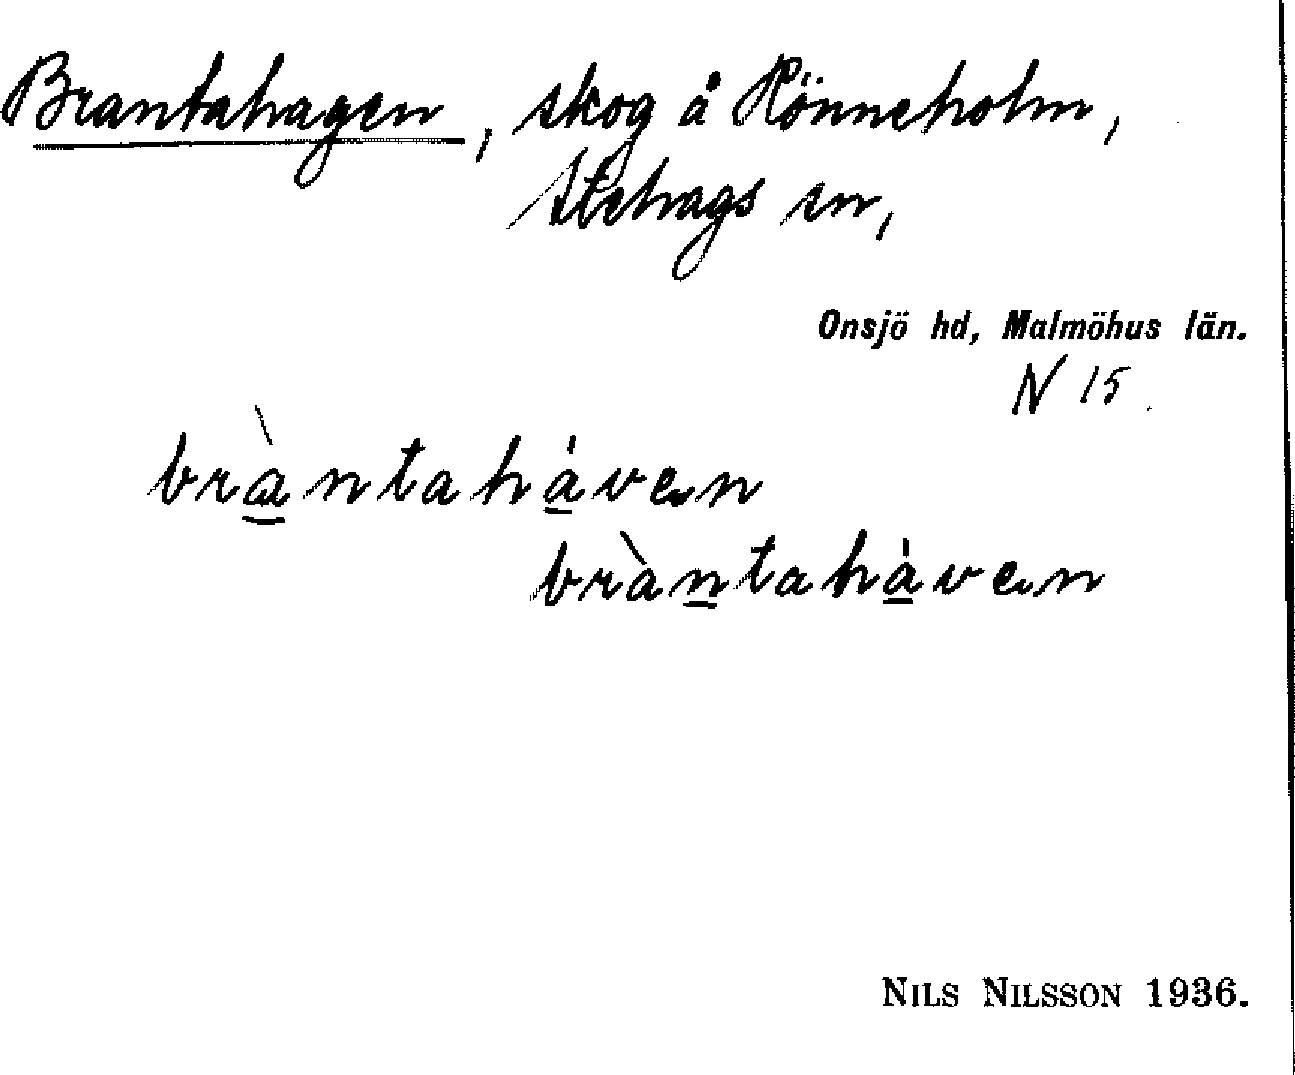 Brantahagen, skog å Hönneholm,
Stehags sn,
Onsjö hd, Malmöhus län.
N 15.
bràntaháven
bràntaháven
NILS NILSSON 1936.